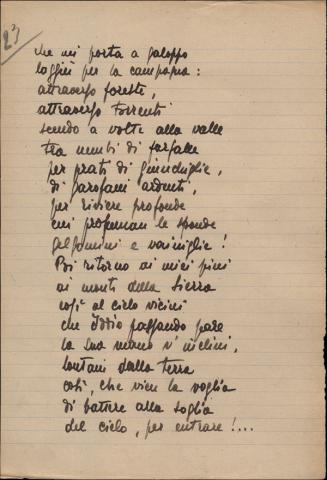 23
che mi porta a galoppo
laggiù per la campagna:
attraverso foreste,
attraverso torrenti
scendo a volte alla valle
tra nembi di farfalle
per prati di giunchiglie,
di garofani ardenti,
per riviere profonde
cui profuman le sponde
gelsomini e vainiglie!
Poi ritorno ai miei pini
ai monti della Sierra
così al cielo vicini
che Iddio passando pare
la sua mano v'inclini,
lontani dalla terra
così, che vien la voglia
di battere alla soglia
del cielo, per entrare!...